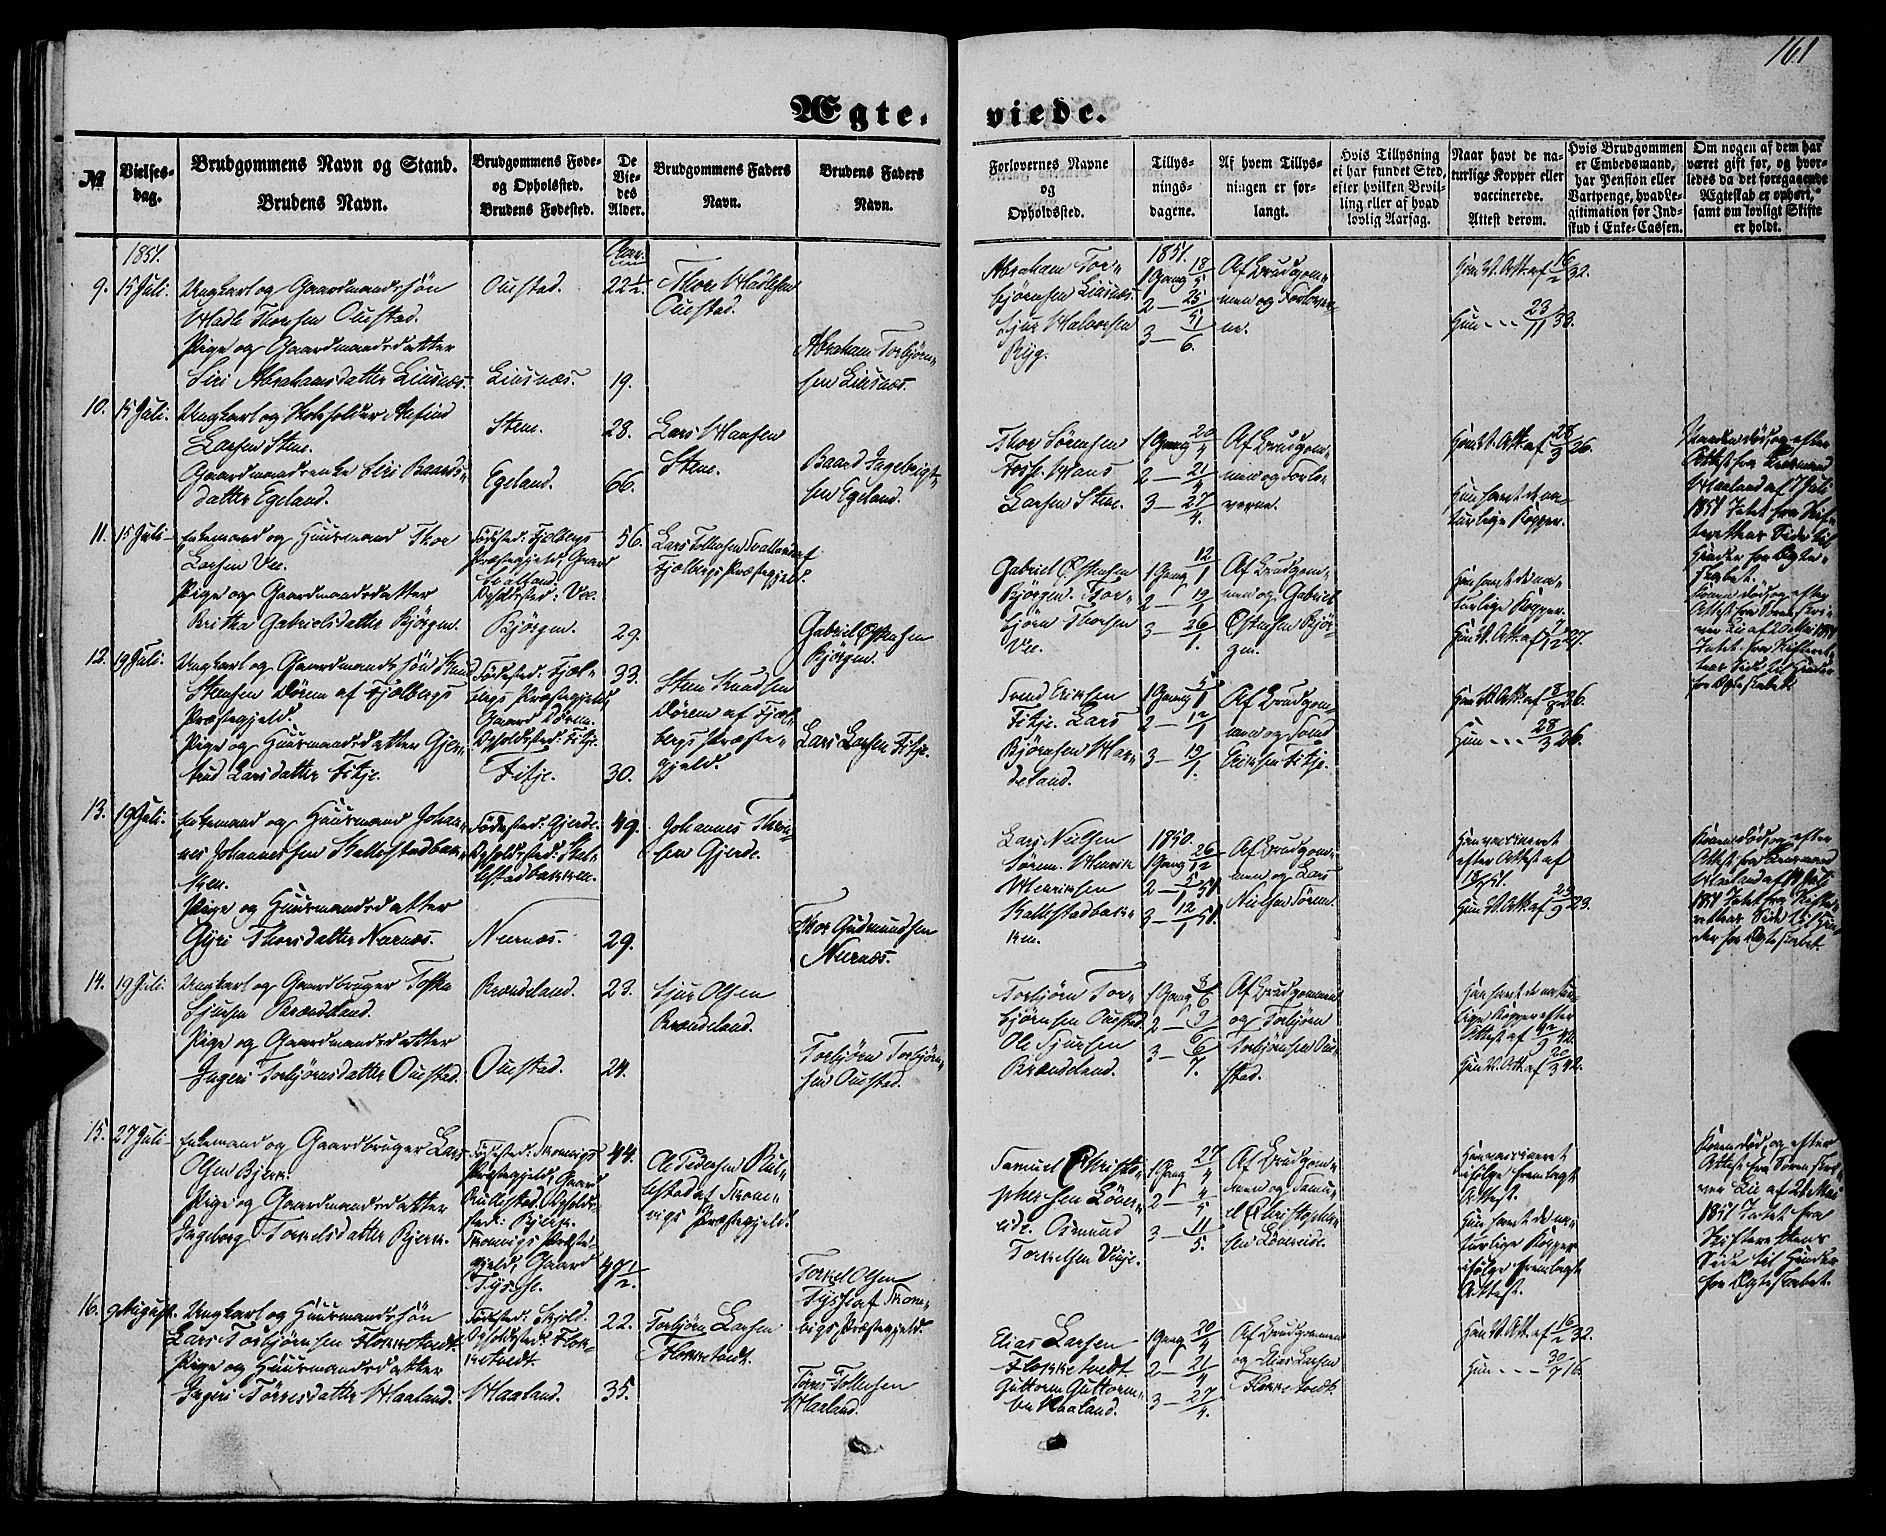 161
Ægte-
viede.
№
Vielses-
dag.
Brudgommens Navn og Stand.
Brudens Navn.
Brudgommens Føde-
og Opholdsted.
Brudens Fødested.
De
Vie-
des
Alder.
Brudgommens Faders
Navn.
Brudens Faders
Navn.
Forlovernes Navne
og
Opholdssted.
Tillys-
nings-
dagene.
Af hvem Tillys-
ningen er for-
langt.
Hvis Tillysning
ei har fundet Sted,
efter hvilken Bevil-
ling eller af hvad
lovlig Aarsag.
Naar havt de na-
turlige Kopper eller
vaccinerede.
Attest derom.
Hvis Brudgommen
er Embedsmand,
har Pension eller
Vartpenge, hvad Le-
gitimation for Ind-
skud i Enke-Cassen.
Om nogen af dem har
været gift før, og hvor-
ledes da det foregaaende
Ægteskab er ophørt,
samt om lovligt Skifte
er holdt.
1851.
Aar.
9. 15 Juli.
Ungkarl og Gaardmandssøn
Thorsen Ouestad.
Pige og Gaardmandsdatter
Siri Abrahamsdatter Liusnæs.
Ouestad.
Liusnæs.
22½
19.
Thore
Ouestad.
Abraham Torbjørn-
sen Liusnæs.
Abraham Tor-
bjørnsen Liusnæs.
Sjur Halvorsen
Ryg.
1851.
1 Gang 18/5
2 — 25/5
3 — 1/6.
Af Brudgom-
men og Forlover-
ne.
Han V. Att. af 16/2 32.
Hun - - - 23/11 33.
10. 15 Juli.
Ungkarl og
Larsen Stene.
Gaardmandsenke Siri Baards-
datter Egeland.
Stene.
Egeland.
28.
66.
Lars Hansen
Stene.
Baard Ingebrigt-
sen Egeland.
Thor Sørensen
Hans
Larsen Stene.
1 Gang 20/4
2 — 21/4
3 — 27/4.
Af Brudgom-
men og Forlo-
verne.
Han V. Att. af 28/3 36.
Hun havt de na-
turlige Kopper.
Manden død, og efter
Attest fra Lensmand
Haaland af 7 Juli
1851 Intet fra Skif-
terettens Side til
Hinder for Ægte-
skabet.
11. 15 Juli
Enkemand og Huusmand Thor
Larsen Vee.
Pige og Gaardmandsdatter
Britha Gabrielsdatter Bjørgen.
Fødested: Fjelbergs
Præstegjeld, Gaard
Opholdsted: Vee.
Bjørgen.
56.
29.
Lars Tollevsen af
Fjelbergs Præstegjeld.
Gabriel Østensen
Bjørgen.
Gabriel Østensen
Bjørgen. Tor-
bjørn Thorsen
Vee.
1 Gang 12/1
2 — 19/1
3 — 26/1.
Af Brudgom-
men og Gabriel
Østensen Bjør-
gen.
Han havt de na-
turlige Kopper.
Konen død, og efter
Attest fra Sorenskri-
ver Lie af 20 Mai 1851
Intet fra Skifteret-
tens Side til Hinder
for Ægteskabet.
12. 19 Juli.
Ungkarl og Gaardmandssøn Knud
Steensen Døren af Fjelbergs
Præstegjeld.
Pige og Huusmandsdatter Gjer-
trud Larsdatter Fitje.
Fødested: Fjel-
bergs Præstegjeld,
Gaard Døren.
Opholdsted: Fitje.
Fitje.
33.
30.
Steen Knudsen
Døren af Fjel-
bergs Præste-
gjeld.
Lars Larsen Fitje.
Svend Eriksen
Fitje. Lars
Bjørnsen Har-
deland.
1 Gang 5/1
2 — 12/1
3 — 19/1.
Af Brudgom-
men og Svend
Eriksen Fitje.
Hun - - - 28/3 26.
13. 19 Juli.
Enkemand og Huusmand Johan-
nes Johannessen Kallestadbak-
ken.
Pige og Huusmandsdatter
Gyri Thorsdatter Nernæs.
Fødested: Gjerde.
Opholdsted: Kal-
lestadbakken.
Nernæs.
49.
29.
Johannes Thor-
sen Gjerde.
Thor Gudmundsen
Nernæs.
Lars Nielsen
Søren. Henrik
Henriksen
Kallestadbak-
ken.
1850.
1 Gang 26/12
2 — 5/1 51.
3 — 12/1 51.
Af Brudgom-
men og Lars
Nielsen Søren.
Han vaccineret
efter Attest af
Konen død, og efter
Attest fra Lensmand
Haaland af 14 Juli
1851 Intet fra Skifte-
rettens Side til Hin-
der for Ægteskabet.
14. 19 Juli.
Ungkarl og Gaardbruger
Sjursen Brændeland.
Pige og Gaardmandsdatter
Ingeri Torbjørnsdatter Ouestad.
Brændeland.
Ouestad.
23.
24.
Sjur Olsen
Brændeland.
Torbjørn Torbjørn-
sen Ouestad.
Torbjørn Tor-
bjørnsen Ouestad.
Ole Sjursen
Brændeland.
Af Brudgommen
og Torbjørn
Torbjørnsen Oue-
stad.
Han havt de natur-
lige Kopper efter
15. 27 Juli
Enkemand og Gaardbruger Lars
Olsen Bjerk.
Pige og Gaardmandsdatter
Ingeborg Torkelsdatter Bjerk.
Fødested: Skonevigs
Præstegjeld, Gaard
Opholds-
sted: Bjerk.
Skonevigs Præste-
gjeld, Gaard
Tysse.
44.
47½.
Ole Pedersen
af Skone-
vigs Præstegjeld.
Torkel Olsen
Tysse af Skone-
vigs Præstegjeld.
Samuel Christo-
phersen Løve-
eide. Osmund
Torkelsen Vinje.
1 Gang 27/4
2 — 4/5
3 — 11/5.
Af Brudgom-
men og Samu-
el Christopher-
sen Løveeide.
Han vaccineret
ifølge fremlagt
Attest.
Hun havt de na-
turlige Kopper
ifølge fremlagt
Attest.
Konen død, og efter
Attest fra Sorenskri-
ver Lie af 21 Mai
1851 Intet fra
Skifterettens
Side til Hinder
for Ægteskabet.
16. August.
Ungkarl og Huusmandssøn
Lars Torbjørnsen Flokketvedt.
Pige og Huusmandsdatter
Ingeri Tørresdatter Haaland.
Fødested: Skjold.
Opholdsted: Flok-
ketvedt.
Haaland.
22.
35.
Torbjørn Larsen
Flokketvedt.
Tørres Tollevsen
Haaland.
Elias Larsen
Flokketvedt.
Guttorm Guttorm-
sen Haaland.
1 Gang 20/4
2 — 21/4
3 — 27/4.
Af Brudgommen
og Elias Larsen
Flokketvedt.
Han V. Att. af 16/2 32.